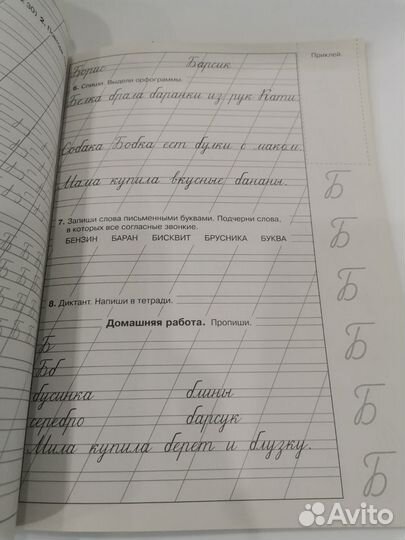 Борис Барсик
Приклей.
6. Спиши. Выдели орфограммы.
Белка брала баранки из рук Кати.
Собака Бобка ест булки с маком.
Мама купила вкусные бананы.
7. Запиши слова письменными буквами. Подчерни слова,
в которых все согласные звонкие.
БЕНЗИН БАРАН БИСКВИТ БРУСНИКА БУКВА
8. Диктант. Напиши в тетради.
Домашняя работа. Пропиши.
Б
Бб
бусинка блины
серебро барсук
Мила купила берет и блузку.
Б
Б
Б
Б
Б
Б
Avito